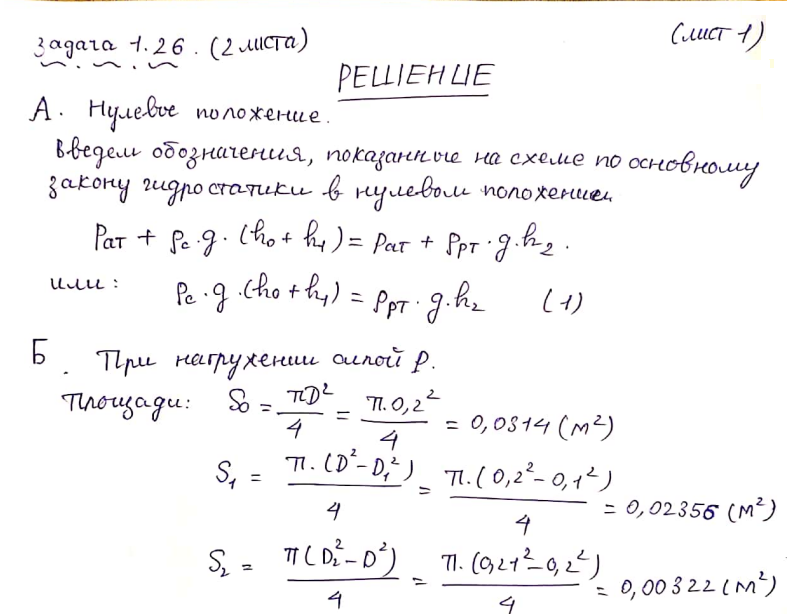 Задача 1.26. (2 листа) (лист 1)
РЕШЕНИЕ
А. Нулевое положение.
Введем обозначения, показанные на схеме по основному
закону гидростатики в нулевом положении
Pат + ρс·g·(h₀ + h₁) = Pат + ρрт·g·h₂.
или: ρс·g·(h₀ + h₁) = ρрт·g·h₂ (1)
Б. При нагружении силой P.
Площади: S₀ = πD²/4 = π·0,2²/4 = 0,0314 (м²)
S₁ = π·(D²−D₁²)/4 = π·(0,2²−0,1²)/4 = 0,02356 (м²)
S₂ = π(D₂²−D²)/4 = π·(0,21²−0,2²)/4 = 0,00322 (м²)